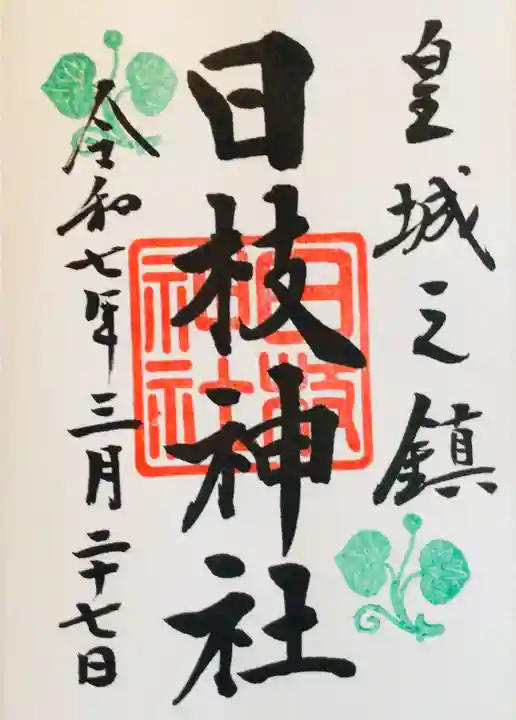 皇城之鎮
日枝神社
日枝神社
令和七年三月二十七日